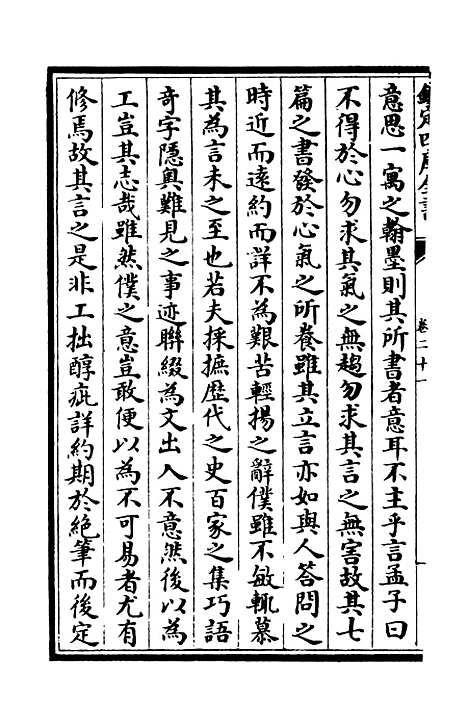 欽定四庫全書
卷二十一
意思一寓之翰墨則其所書者意耳不主乎言孟子曰
不得於心勿求其氣之無趨勿求其言之無害故其七
篇之書發於心氣之所養雖其立言亦如與人答問之
時近而遠約而詳不為艱苦輕揚之辭僕雖不敏輒慕
其為言未之至也若夫採摭歴代之史百家之集巧語
奇字隠奥難見之事迹聯綴為文出入不意然後以為
工豈其志哉雖然僕之意豈敢便以為不可易者尤有
修焉故其言之是非工拙醇疵詳約期於絶筆而後定